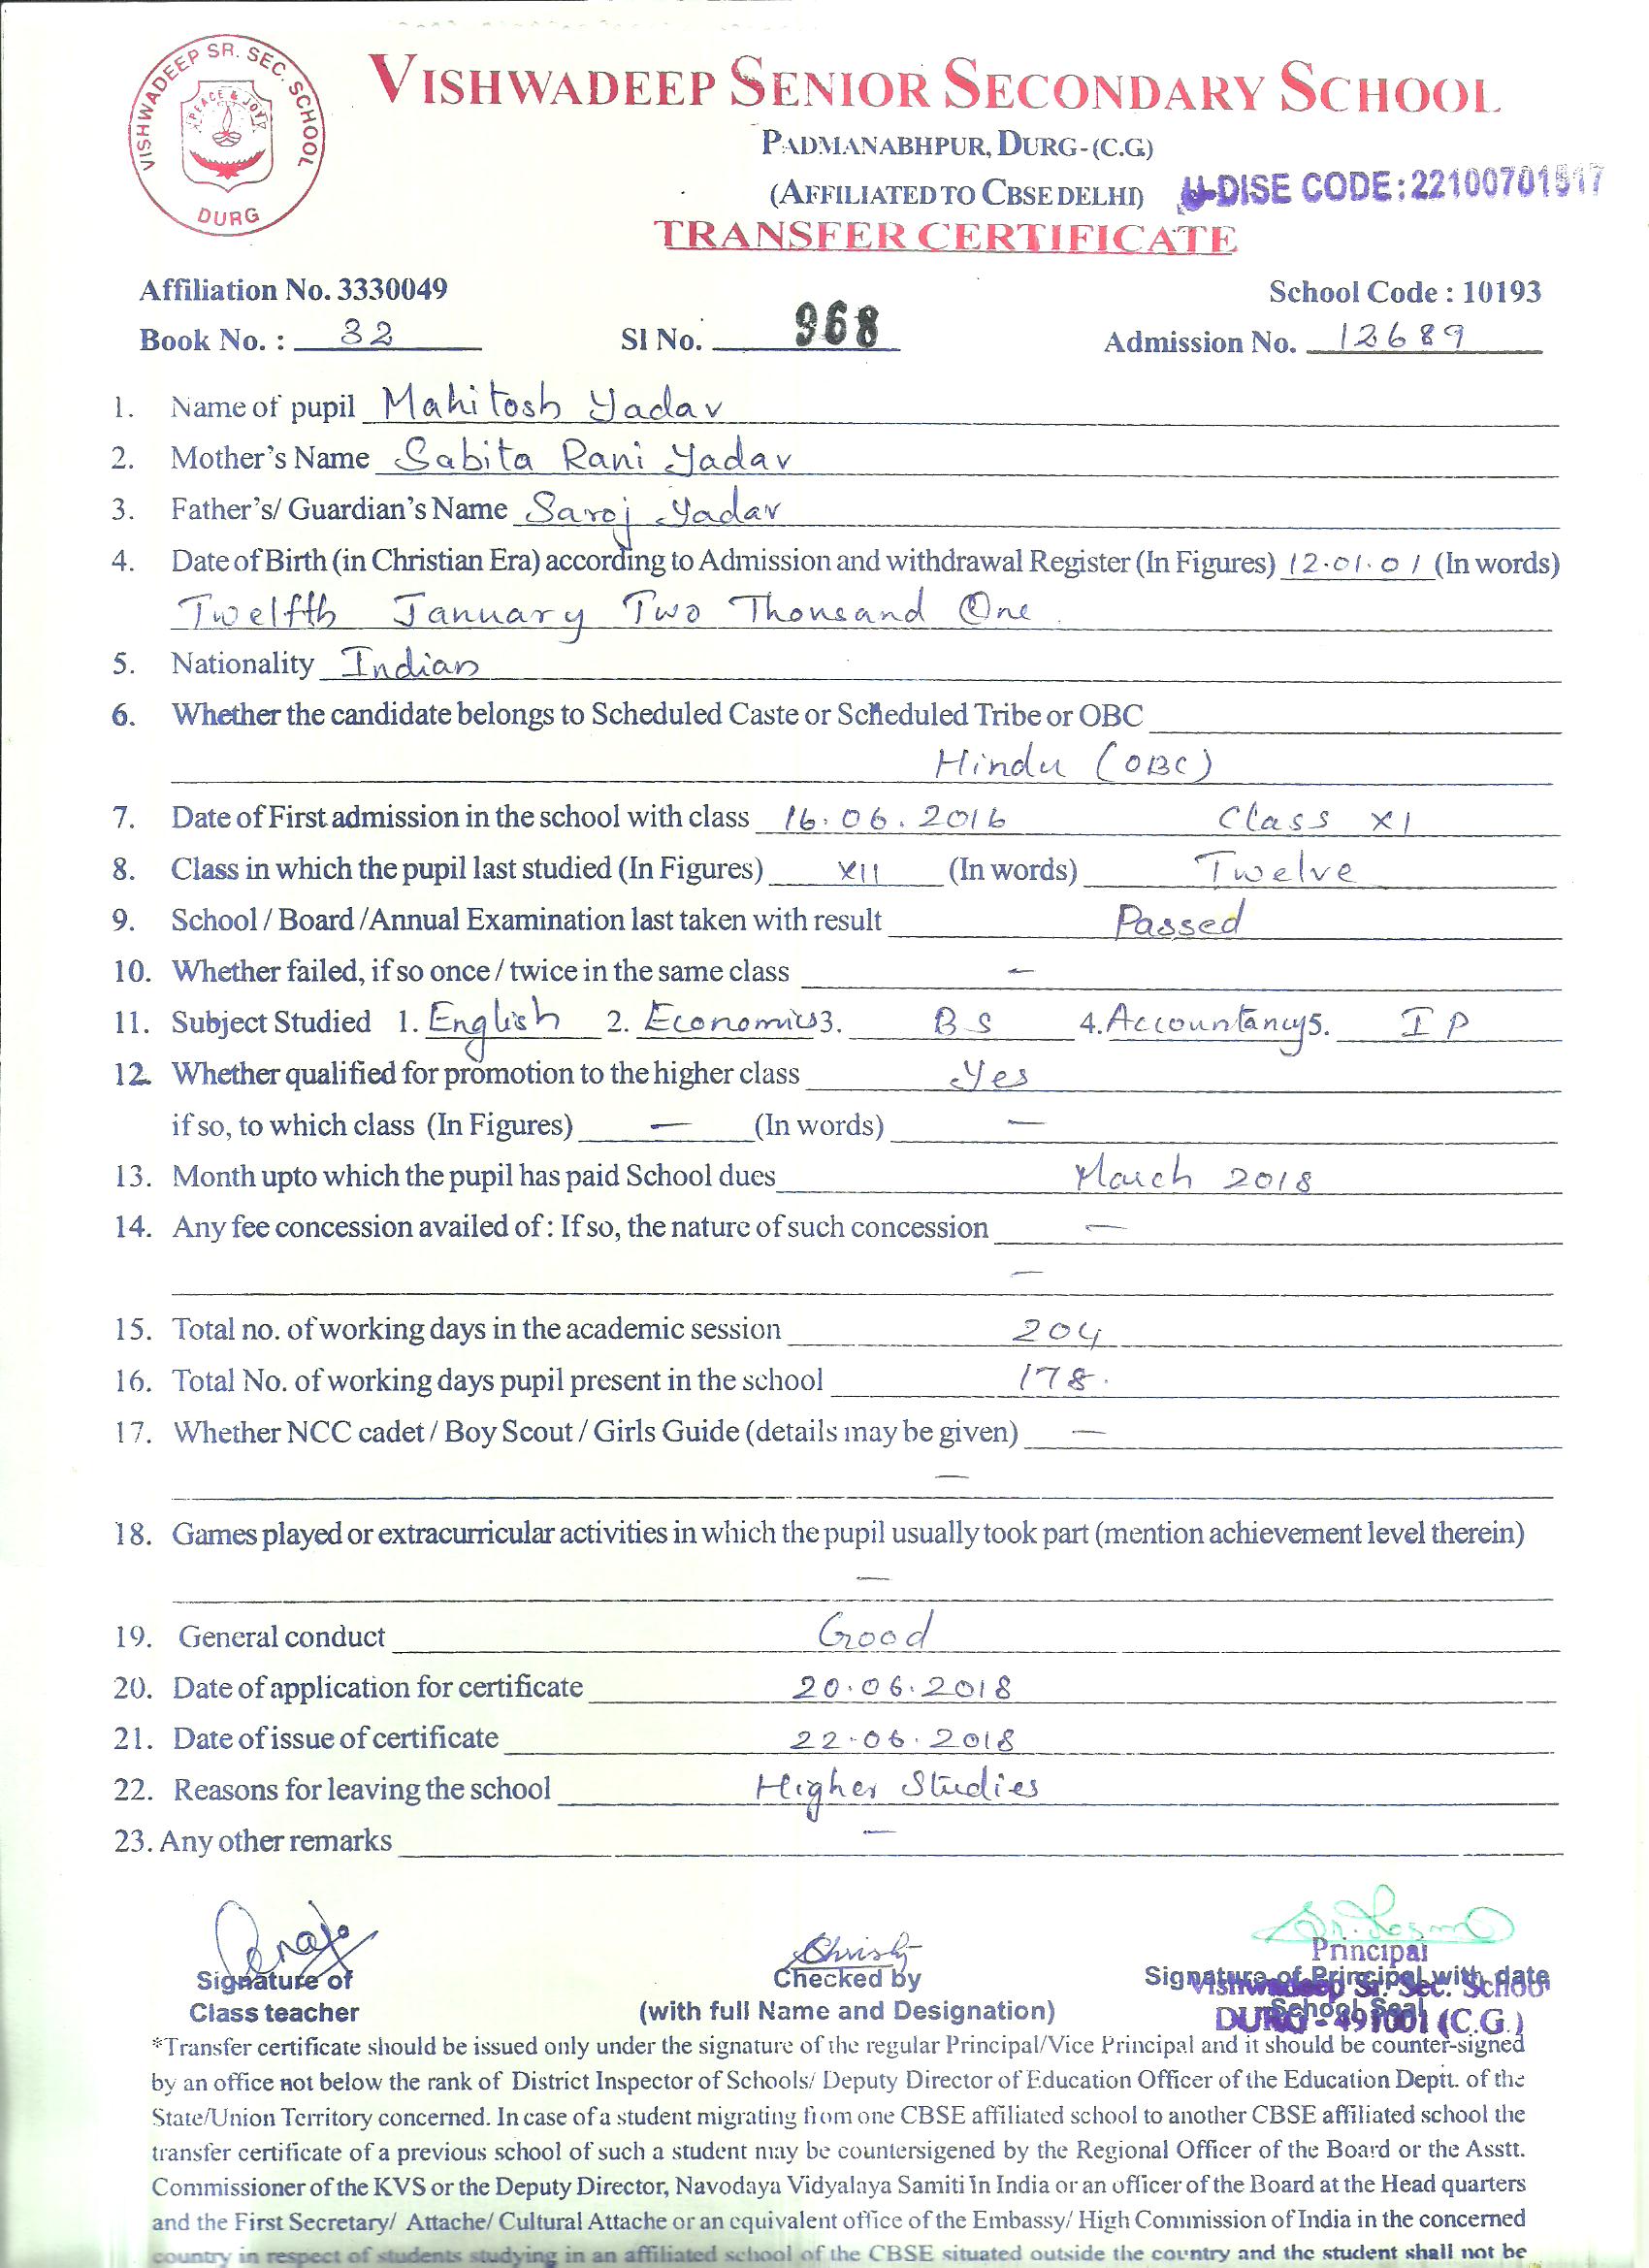 VISHWADEEP SR. SEC. SCHOOL
PEACE & JOY
DURG
VISHWADEEP SENIOR SECONDARY SCHOOL
PADMANABHPUR, DURG-(C.G)
(AFFILIATED TO CBSE DELHI) U-DISE CODE:22100701517
TRANSFER CERTIFICATE
Affiliation No. 3330049 School Code : 10193
Book No. : 32 Sl No. 968 Admission No. 12689
1. Name of pupil Mahitosh Yadav
2. Mother's Name Sabita Rani Yadav
3. Father's/ Guardian's Name Saroj Yadav
4. Date of Birth (in Christian Era) according to Admission and withdrawal Register (In Figures) 12.01.01 (In words)
Twelfth January Two Thousand One
5. Nationality Indian
6. Whether the candidate belongs to Scheduled Caste or Scheduled Tribe or OBC
Hindu (OBC)
7. Date of First admission in the school with class 16.06.2016 Class XI
8. Class in which the pupil last studied (In Figures) XII (In words) Twelve
9. School / Board /Annual Examination last taken with result Passed
10. Whether failed, if so once / twice in the same class —
11. Subject Studied 1. English 2. Economics 3. BS 4. Accountancy 5. IP
12. Whether qualified for promotion to the higher class Yes
if so, to which class (In Figures) — (In words) —
13. Month upto which the pupil has paid School dues March 2018
14. Any fee concession availed of : If so, the nature of such concession —
—
15. Total no. of working days in the academic session 204
16. Total No. of working days pupil present in the school 178.
17. Whether NCC cadet / Boy Scout / Girls Guide (details may be given) —
—
18. Games played or extracurricular activities in which the pupil usually took part (mention achievement level therein)
—
19. General conduct Good
20. Date of application for certificate 20.06.2018
21. Date of issue of certificate 22.06.2018
22. Reasons for leaving the school Higher Studies
23. Any other remarks —
Principal
Signature of Checked by Signature of Principal with date
Vishwadeep Sr. Sec. School
Class teacher (with full Name and Designation) School Seal
DURG - 491001 (C.G.)
*Transfer certificate should be issued only under the signature of the regular Principal/Vice Principal and it should be counter-signed
by an office not below the rank of District Inspector of Schools/ Deputy Director of Education Officer of the Education Deptt. of the
State/Union Territory concerned. In case of a student migrating from one CBSE affiliated school to another CBSE affiliated school the
transfer certificate of a previous school of such a student may be countersigened by the Regional Officer of the Board or the Asstt.
Commissioner of the KVS or the Deputy Director, Navodaya Vidyalaya Samiti in India or an officer of the Board at the Head quarters
and the First Secretary/ Attache/ Cultural Attache or an equivalent office of the Embassy/ High Commission of India in the concerned
country in respect of students studying in an affiliated school of the CBSE situated outside the country and the student shall not be